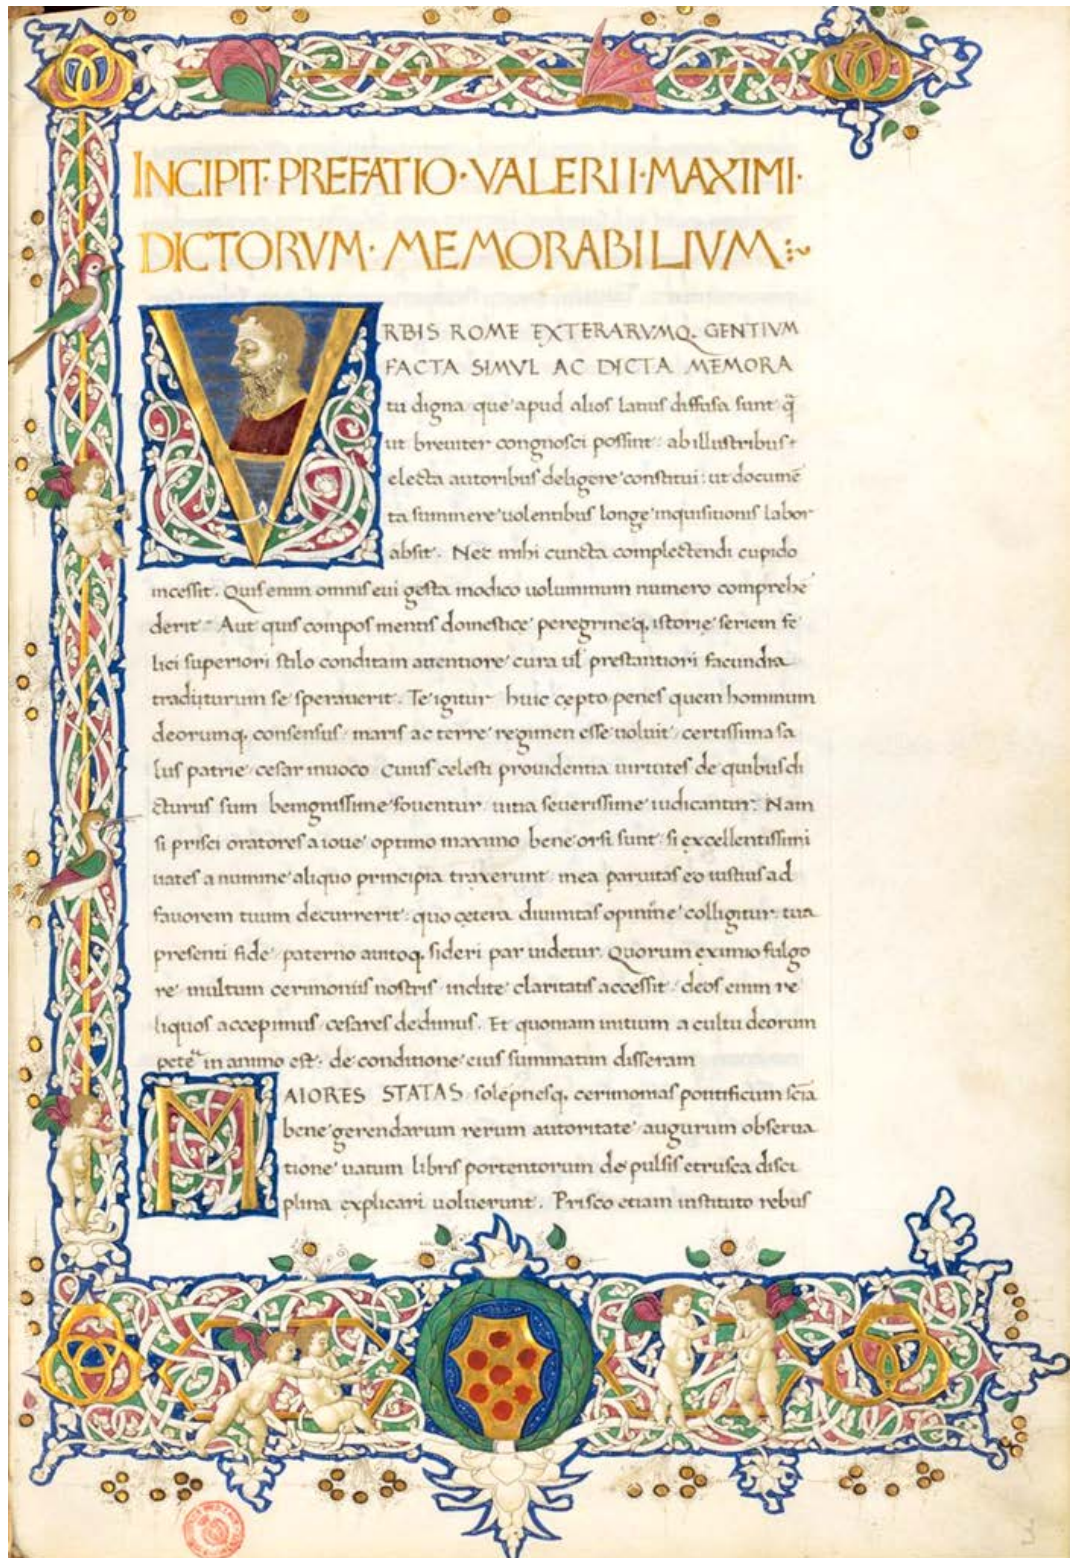 INCIPIT· PREFATIO· VALERII· MAXIMI·
DICTORVM· MEMORABILIVM
VRBIS ROME EXTERARVMQ. GENTIVM
FACTA SIMVL AC DICTA MEMORA
tu digna que apud alios latius diffusa sunt q̃
ut breuiter congnosci possint: ab illustribus
electa autoribus deligere constitui: ut documē
ta summere uolentibus longe inquisitionis labor
absit. Nec mihi cuncta complectendi cupido
incessit. Quis enim omnis eui gesta modico uoluminum numero comprehē
derit Aut quis compos mentis domestice peregrineq. istorie seriem fe
lici superiori stilo conditam attentiore cura ul prestantiori facundia
traditurum se sperauerit. Te igitur huic cepto penes quem hominum
deorumq. consensus maris ac terre regimen esse uoluit certissima sa
lus patrie cesar inuoco Cuius celesti prouidentia uirtutes de quibus di
cturus sum benignissime fouentur uitia seuerissime uidicantur. Nam
si prisci oratores a ioue optimo maximo bene orsi sunt si excellentissimi
uates a numine aliquo principia traxerunt mea paruitas eo iustius ad
fauorem tuum decurrerit quo cętera diuinitas opinine colligitur tua
presenti fide paterno auitoq. sideri par uidetur. Quorum eximio fulgo
re multum cerimoniis nostris inclite claritatis accessit deos enim re
liquos accepimus cesares dedimus. Et quoniam initium a cultu deorum
in animo est de conditione eius summatim disseram
MAIORES STATAS solēpnesq. cerimonias pontificum scīa
bene gerendarum rerum autoritate augurum obserua
tione uatum libris portentorum depulsis etrusca disci
plina explicari uoluerunt. Prisco etiam instituto rebus